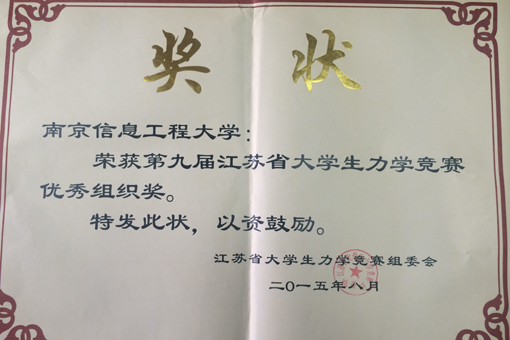 奖状
南京信息工程大学：
荣获第九届江苏省大学生力学竞赛
优秀组织奖。
特发此状，以资鼓励。
江苏省大学生力学竞赛组委会
二〇一五年八月